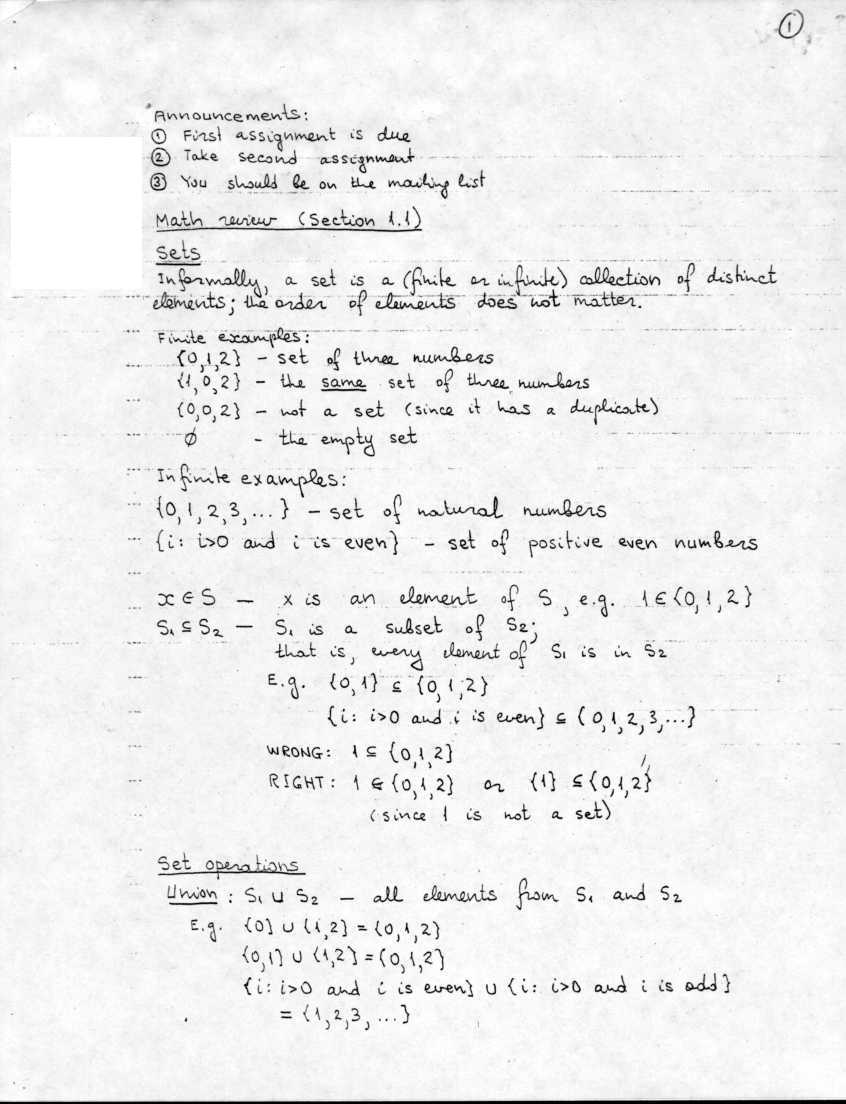 ①
Announcements:
① First assignment is due
② Take second assignment
③ You should be on the mailing list
Math review (Section 1.1)
Sets
Informally, a set is a (finite or infinite) collection of distinct
elements; the order of elements does not matter.
Finite examples:
{0,1,2} – set of three numbers
{1,0,2} – the same set of three numbers
{0,0,2} – not a set (since it has a duplicate)
∅ – the empty set
Infinite examples:
{0,1,2,3,...} – set of natural numbers
{i: i>0 and i is even} – set of positive even numbers
x ∈ S – x is an element of S, e.g. 1 ∈ {0,1,2}
S₁ ⊆ S₂ – S₁ is a subset of S₂;
that is, every element of S₁ is in S₂
E.g. {0,1} ⊆ {0,1,2}
{i: i>0 and i is even} ⊆ {0,1,2,3,...}
WRONG: 1 ⊆ {0,1,2}
RIGHT: 1 ∈ {0,1,2} or {1} ⊆ {0,1,2}
(since 1 is not a set)
Set operations
Union: S₁ ∪ S₂ – all elements from S₁ and S₂
E.g. {0} ∪ {1,2} = {0,1,2}
{0,1} ∪ {1,2} = {0,1,2}
{i: i>0 and i is even} ∪ {i: i>0 and i is odd}
= {1,2,3,...}